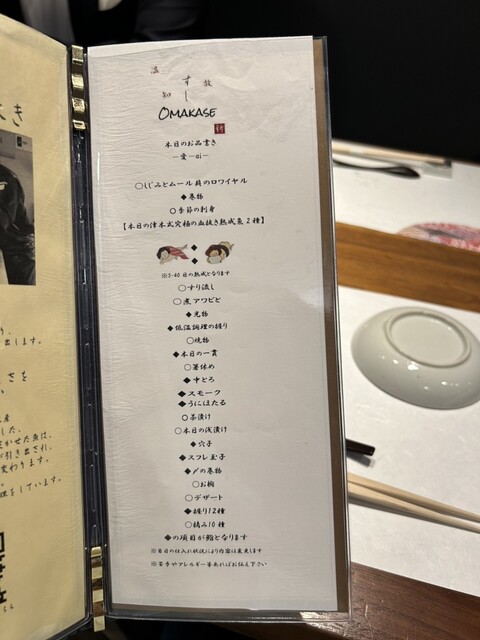 温故知
すし
OMAKASE
本日のお品書き
ー愛ーaiー
○しじみとムール貝のロワイヤル
◆巻物
○季節の刺身
【本日の津本式究極の血抜き熟成魚2種】
※3-40日の熟成となります
○すり流し
○煮アワビと
◆光物
◆低温調理の握り
○焼物
◆本日の一貫
○箸休め
◆中とろ
◆スモーク
◆うにほたる
○茶漬け
○本日の浅漬け
◆穴子
◆スフレ玉子
◆〆の巻物
○お椀
○デザート
◆握り12種
○摘み10種
◆の項目が鮨となります
※当日の仕入れ状況により内容は変更します
※苦手やアレルギー等あればお伝え下さい